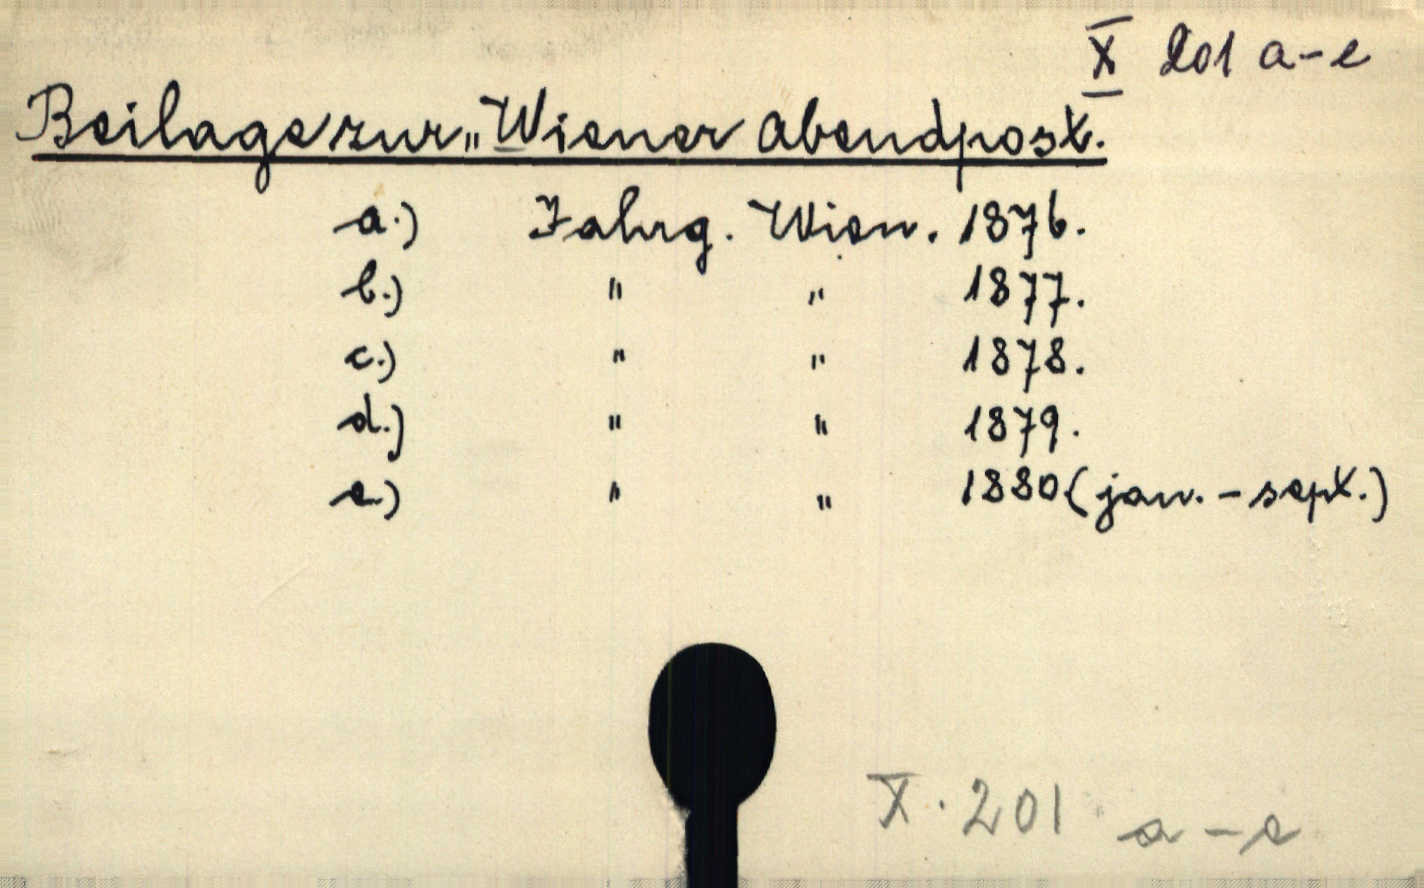 X 201 a-e
Beilage zur „Wiener Abendpost.
a.) Jahrg. Wien. 1876.
b.) " " 1877.
c.) " " 1878.
d.) " " 1879.
e.) " " 1880 (jan. - sept.)
X. 201 a-e